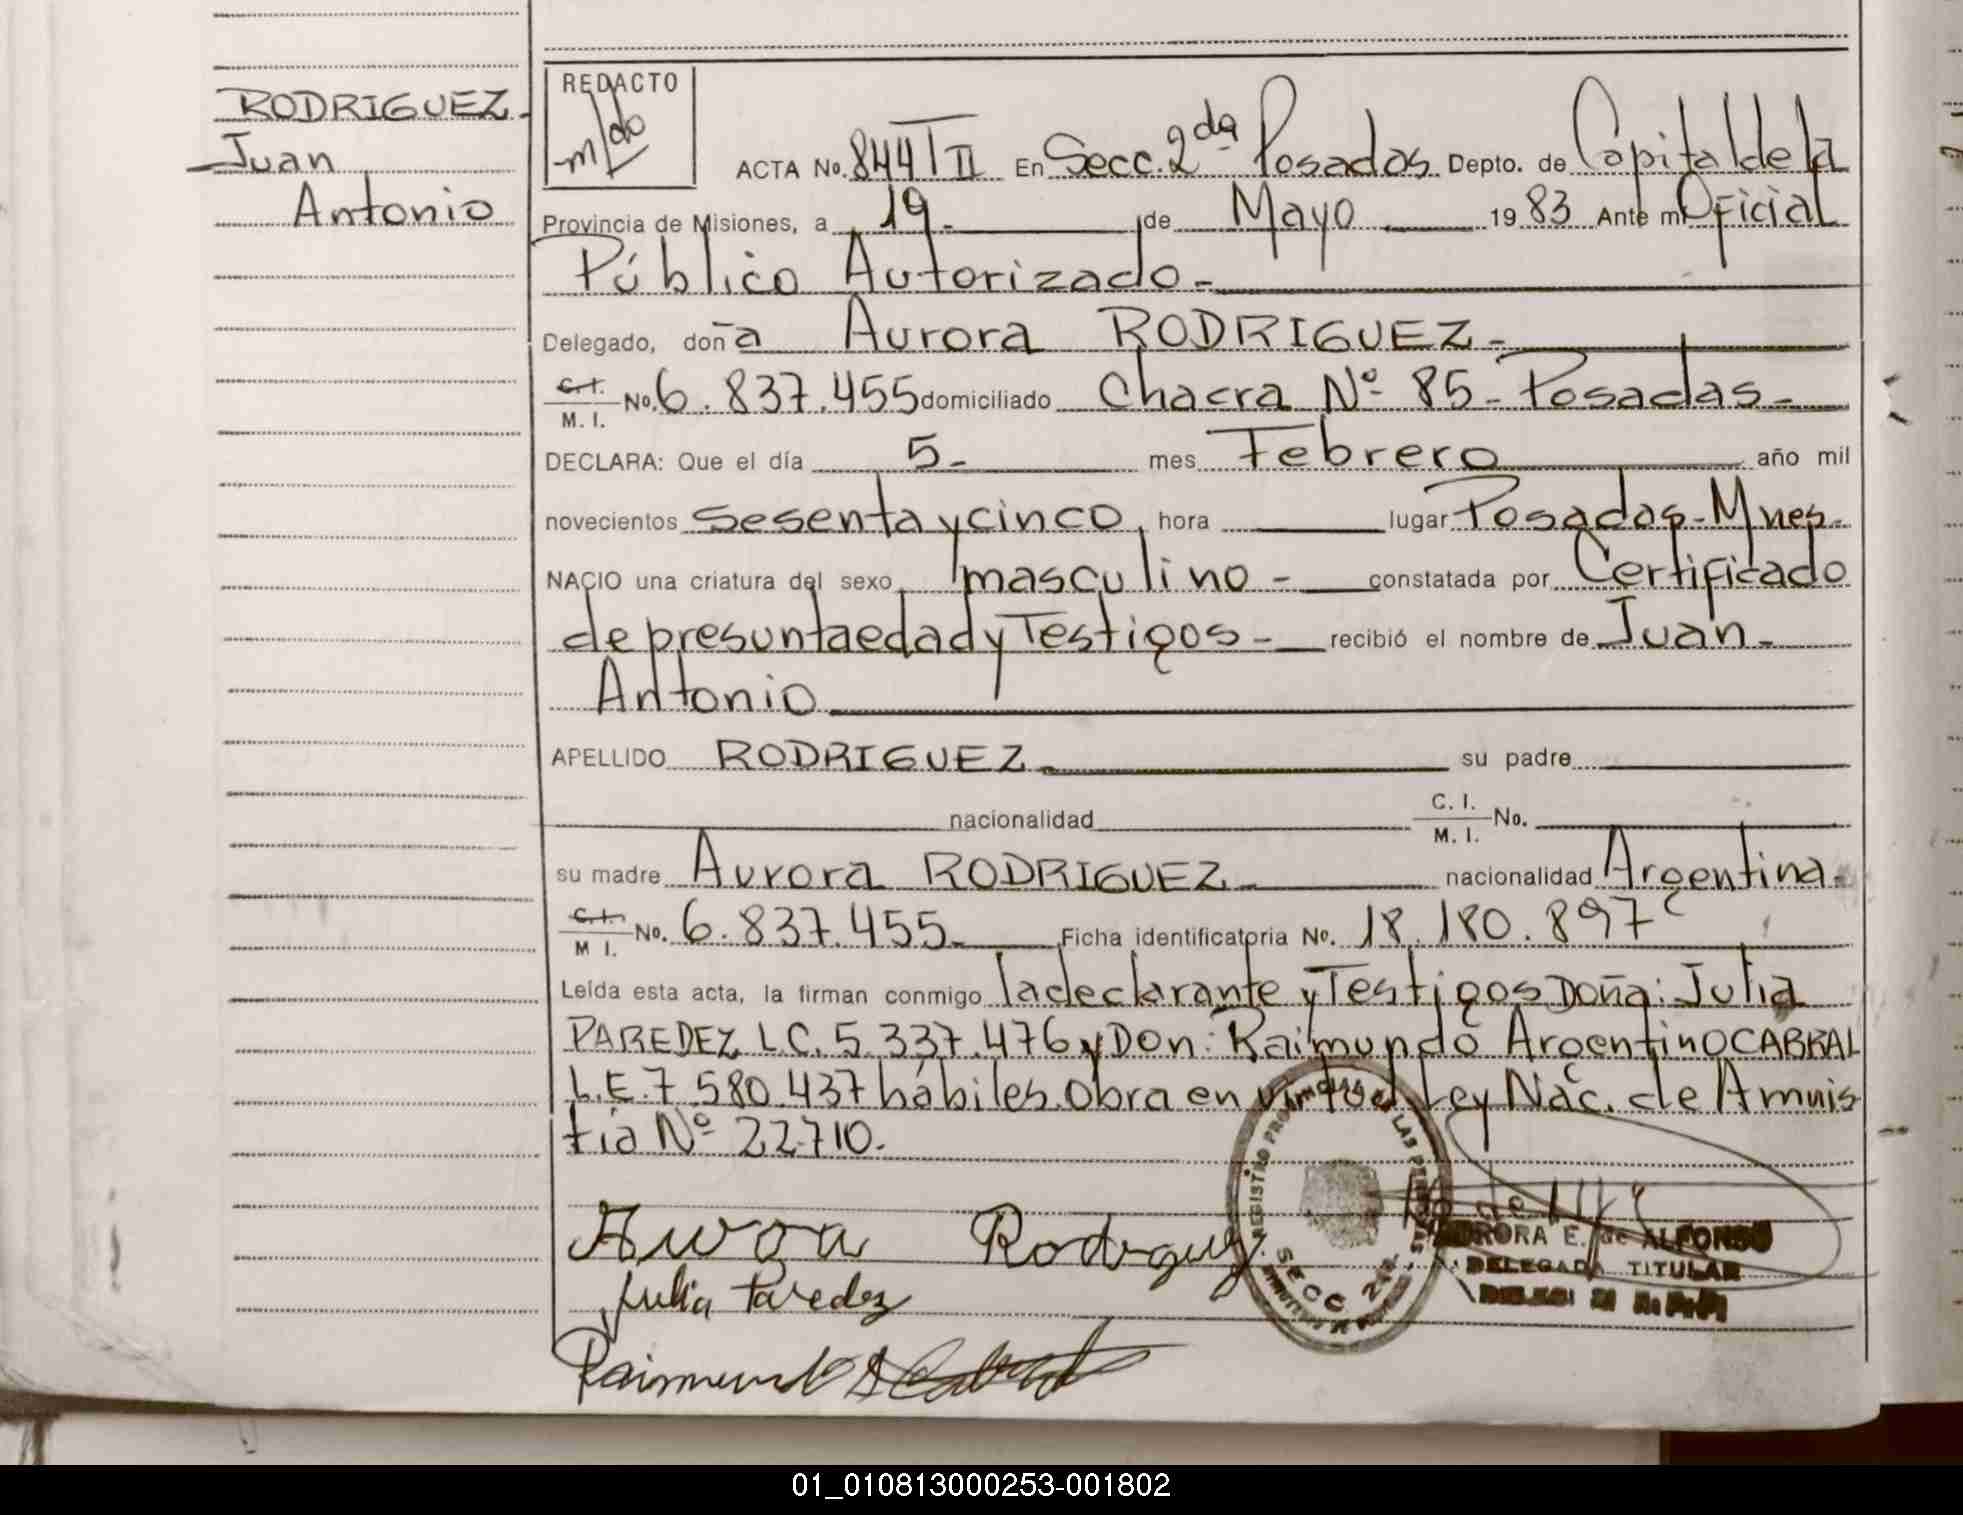 RODRIGUEZ.
Juan
Antonio
REDACTO
ACTA No. 844 T II En Secc. 2da Posadas Depto. de Capital de la
Provincia de Misiones, a 19 - de Mayo 19 83 Ante mi Oficial
Público Autorizado -
Delegado, doña Aurora RODRIGUEZ -
C. I.
M. I. No. 6.837.455 domiciliado Chacra Nº 85 - Posadas -
DECLARA: Que el día 5 - mes Febrero año mil
novecientos Sesenta y cinco, hora lugar Posadas - Mnes.
NACIO una criatura del sexo masculino - constatada por Certificado
de presunta edad y Testigos - recibió el nombre de Juan -
Antonio
APELLIDO RODRIGUEZ su padre
nacionalidad C. I.
M. I. No.
su madre Aurora RODRIGUEZ nacionalidad Argentina.
C. I.
M I. No. 6.837.455 - Ficha identificatoria No. 18.180.897
Leída esta acta, la firman conmigo la declarante y Testigos Doña: Julia
PAREDEZ L.C. 5.337.476 y Don: Raimundo Argentino CABRAL
L.E. 7.580.437 hábiles. Obra en virtud Ley Nac. de Amnis
tía Nº 22.710.
Aurora Rodriguez
Julia Paredez
Raimundo A Cabral
REGISTRO PROVINCIAL DE LAS PERSONAS
SECC 2da
AURORA E. de ALFONSO
DELEGADA TITULAR
01_010813000253-001802